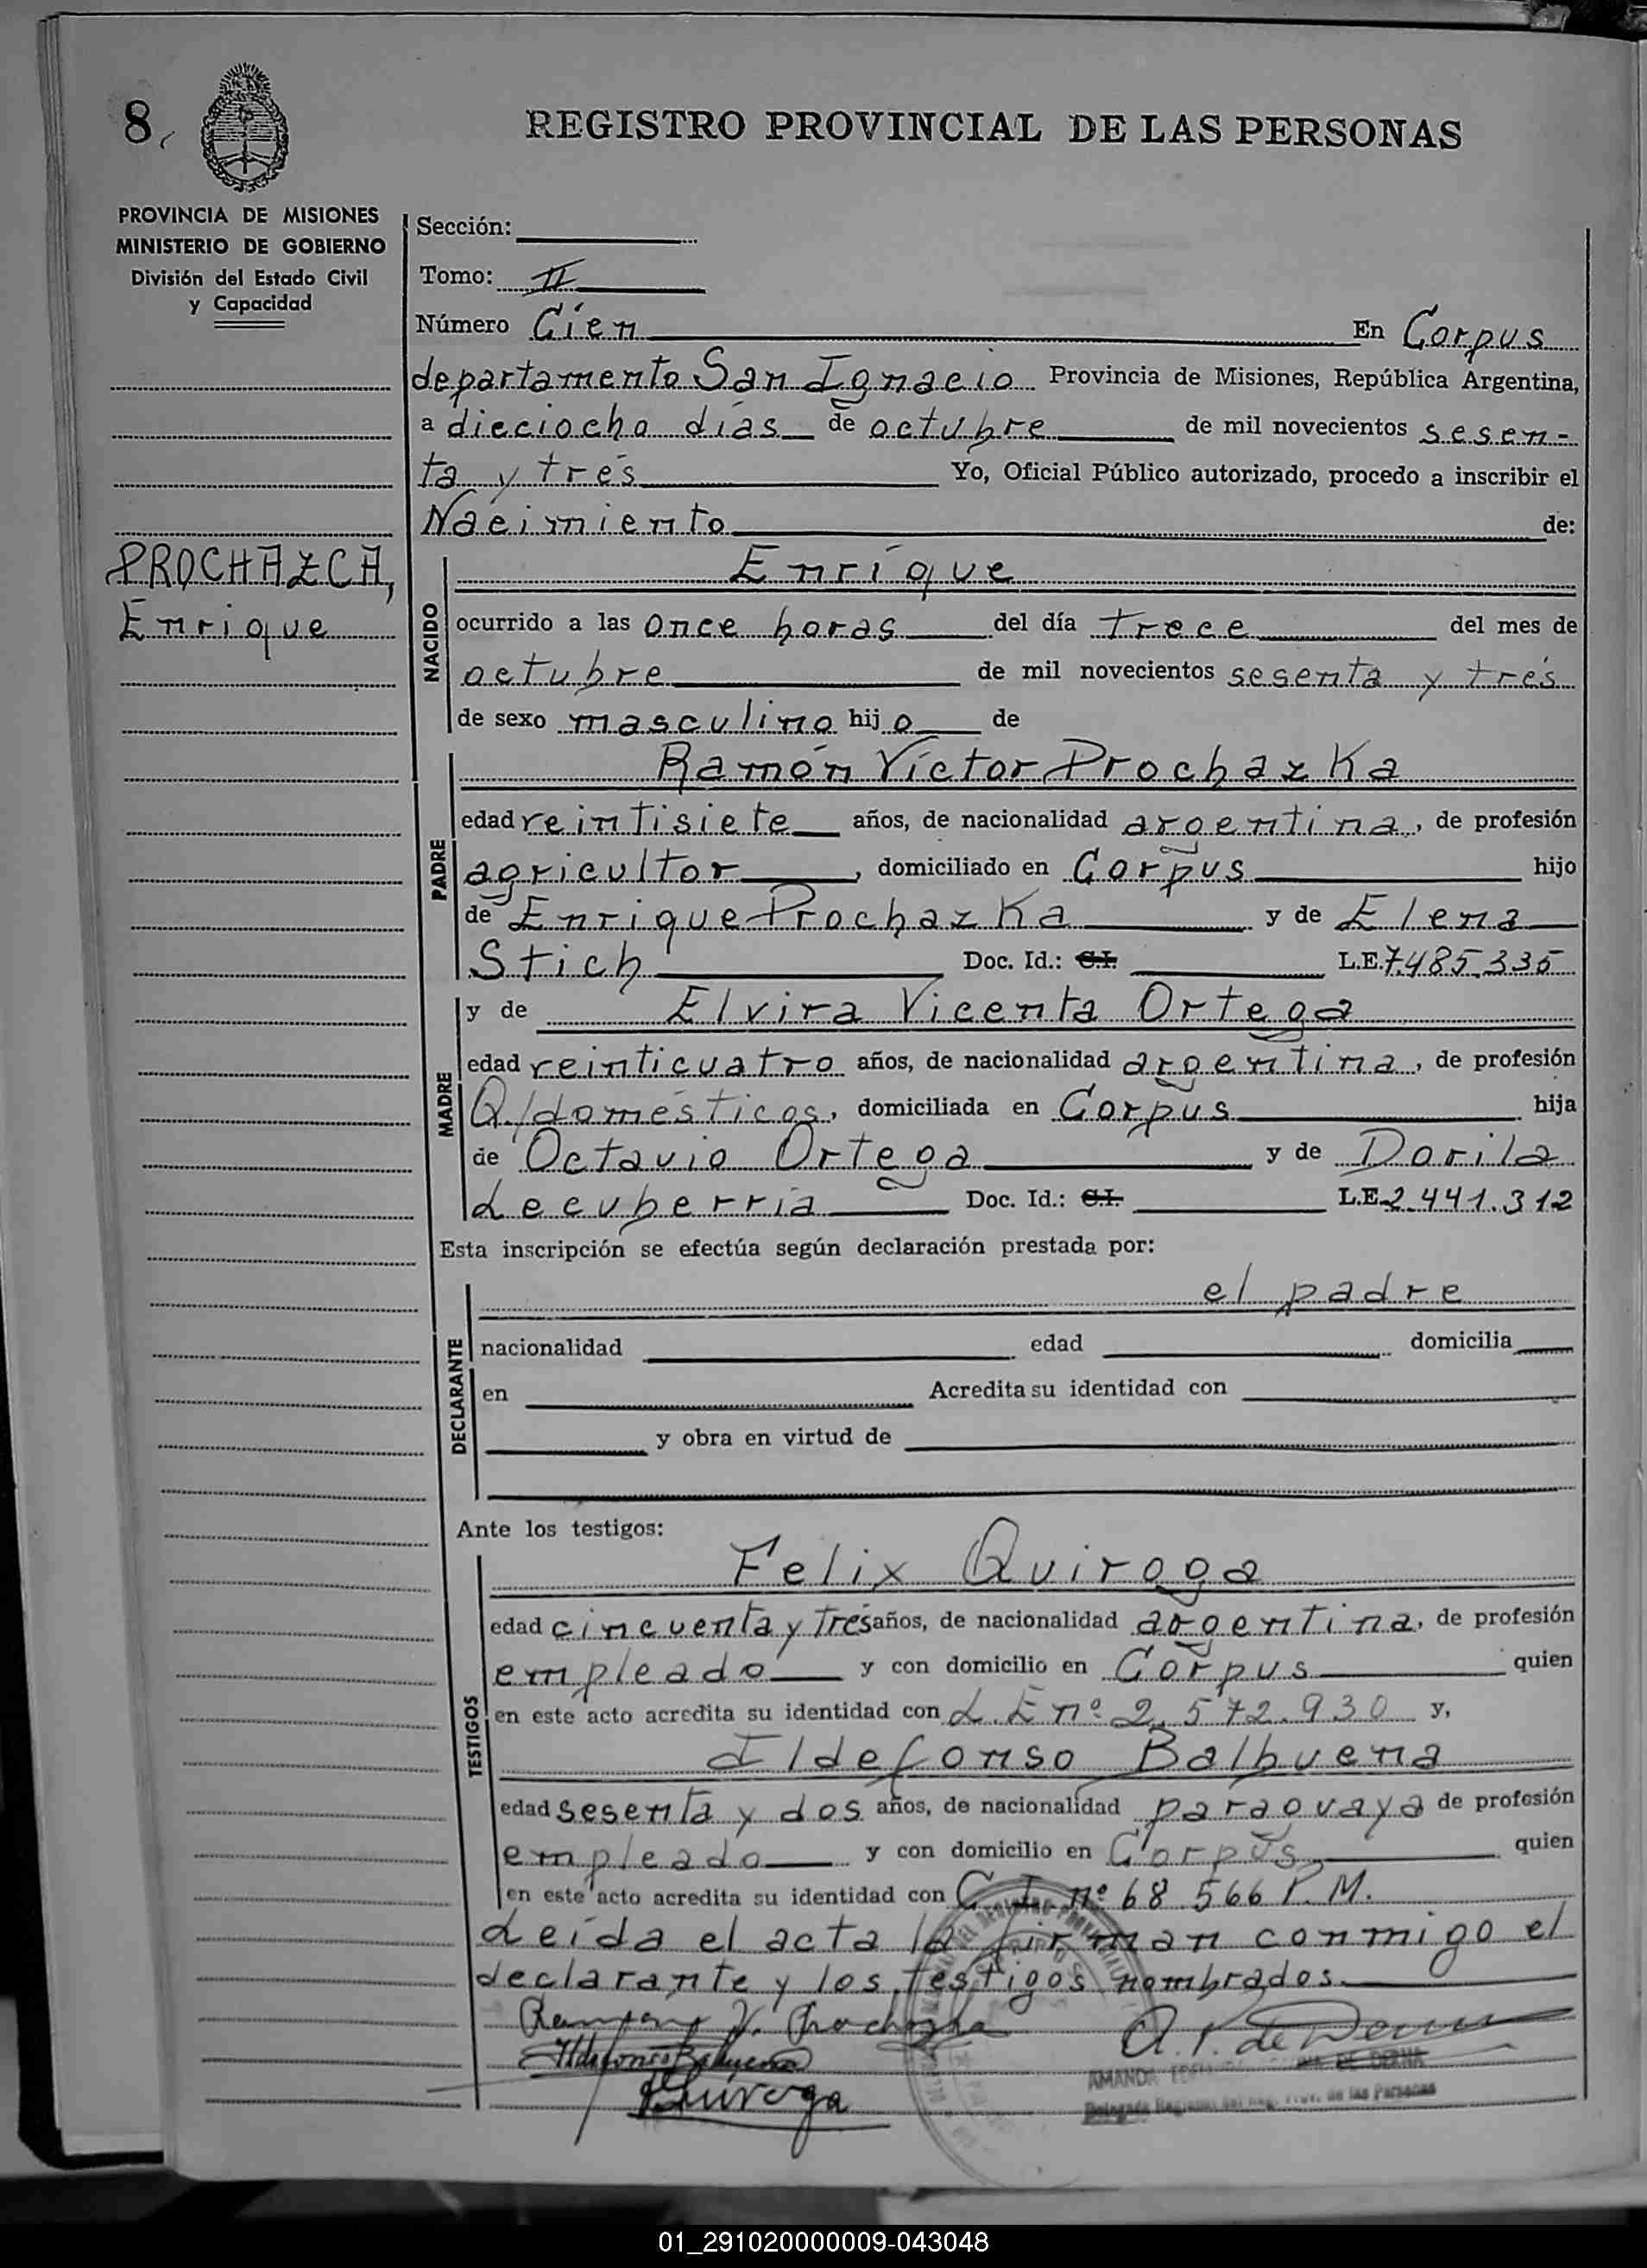 8
REGISTRO PROVINCIAL DE LAS PERSONAS
PROVINCIA DE MISIONES
MINISTERIO DE GOBIERNO
División del Estado Civil
y Capacidad
PROCHAZCA,
Enrique
Sección:
Tomo: II
Número Cien En Corpus
departamento San Ignacio Provincia de Misiones, República Argentina,
a dieciocho días de octubre de mil novecientos sesen-
ta y tres Yo, Oficial Público autorizado, procedo a inscribir el
Nacimiento de:
NACIDO
Enrique
ocurrido a las once horas del día trece del mes de
octubre de mil novecientos sesenta y tres
de sexo masculino hijo de
PADRE
Ramón Víctor Prochazka
edad veintisiete años, de nacionalidad argentina, de profesión
agricultor, domiciliado en Corpus hijo
de Enrique Prochazka y de Elena
Stich Doc. Id.: C.I. L.E. 7.485.335
MADRE
y de Elvira Vicenta Ortega
edad veinticuatro años, de nacionalidad argentina, de profesión
Q/domésticos, domiciliada en Corpus hija
de Octavio Ortega y de Dorila
Lecuberria Doc. Id.: C.I. L.E. 2.441.312
Esta inscripción se efectúa según declaración prestada por:
DECLARANTE
el padre
nacionalidad edad domicilia
en Acredita su identidad con
y obra en virtud de
Ante los testigos:
TESTIGOS
Felix Quiroga
edad cincuenta y tres años, de nacionalidad argentina, de profesión
empleado y con domicilio en Corpus quien
en este acto acredita su identidad con L.E nº 2.572.930 y,
Ildefonso Balbuena
edad sesenta y dos años, de nacionalidad paraguaya de profesión
empleado y con domicilio en Corpus, quien
en este acto acredita su identidad con C.I. nº 68.566 P.M.
Leída el acta la firman conmigo el
declarante y los testigos nombrados.
Ramon V. Prochazka
A. P. de Derna
Ildefonso Balbuena
AMANDA DE DERNA
Quiroga
Delegada Regional del Reg. Prov. de las Personas
01_291020000009-043048